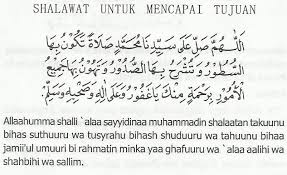 SHALAWAT UNTUK MENCAPAI TUJUAN
اَللّٰهُمَّ صَلِّ عَلَى سَيِّدِنَا مُحَمَّدٍ صَلَاةً تَكُوْنُ بِهَا
السُّطُوْرُ وَتُشْرَحُ بِهَا الصُّدُوْرُ وَتَهُوْنُ بِهَا جَمِيْعُ
الْأُمُوْرِ بِرَحْمَةٍ مِنْكَ يَاغَفُوْرُ وَعَلَى اٰلِهِ وَصَحْبِهِ وَسَلِّمْ
Allaahumma shalli `alaa sayyidinaa muhammadin shalaatan takuunu
bihas suthuuru wa tusyrahu bihash shuduuru wa tahuunu bihaa
jamii'ul umuuri bi rahmatin minka yaa ghafuuru wa `alaa aalihi wa
shahbihi wa sallim.